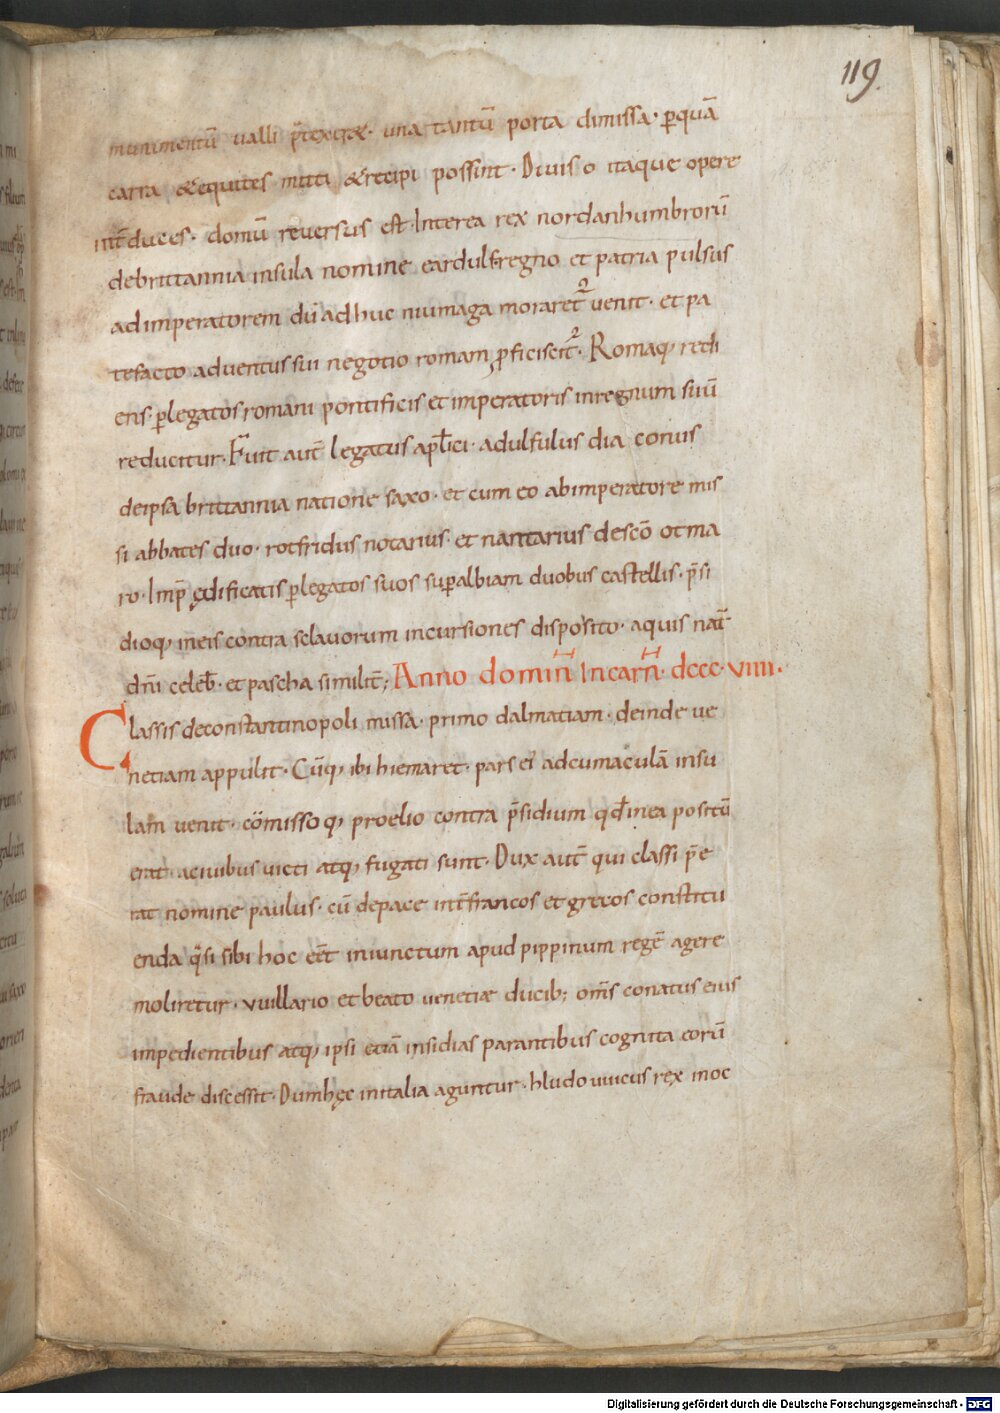 119.
munimentū ualli p̄texeret· una tantū porta dimissa· ꝑquā
carra &equites mitti &recipi possint· Diuiso itaque opere
int̄duces· domū reuersus est· Interea rex nordanhumbrorū
debrittannia insula nomine eardulf regno et patria pulsus
adimperatorem dū adhuc niumaga moraret᷑ uenit· et pa
tefacto aduentus sui negotio romam ꝓficiscit᷑· Romaq; redi
ens· ꝑlegatos romani pontificis et imperatoris inregnum suū
reducitur· Fuit aut̄ legatus apl̄ici· adulfulus dia conus
deipsa brittannia natione saxo· et cum eo abimperatore mis
si abbates duo· rotfridus notarius· et nantarius descō otma
ro· Imp̄ ędificatis ꝑlegatos suos suꝑalbiam duobus castellis· p̄si
dioq; ineis contra sclauorum incursiones disposito· aquis nat̄
dn̄i celeb̄· et pascha similit̄; Anno domin̄ Incarn̄· dccc·viiii·
Classis deconstantinopoli missa· primo dalmatiam· deinde ue
netiam appulit· Cūq; ibi hiemaret· pars ei adcumaculā insu
lam uenit· cōmissoq; proelio contra p̄sidium qd̄inea positū
erat· aciuibus uicti atq; fugati sunt· Dux aut̄ qui classi p̄e
rat nomine paulus· cū depace int̄francos et grecos constitu
enda q̄si sibi hoc eēt iniunctum apud pippinum regē agere
moliretur· vuillario et beato uenetiæ ducib; om̄s conatus eius
impedientibus atq; ipsi etiā insidias parantibus cognita eorū
fraude discessit· Dumhęc initalia aguntur· hludouuicus rex inoc
Digitalisierung gefördert durch die Deutsche Forschungsgemeinschaft - DFG